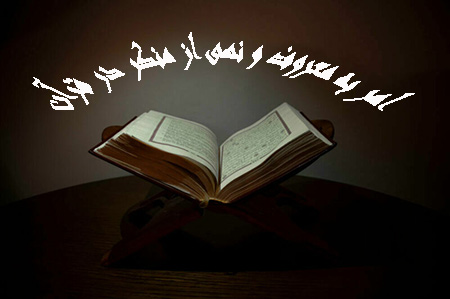 امر به معروف و نهی از منکر در قرآن